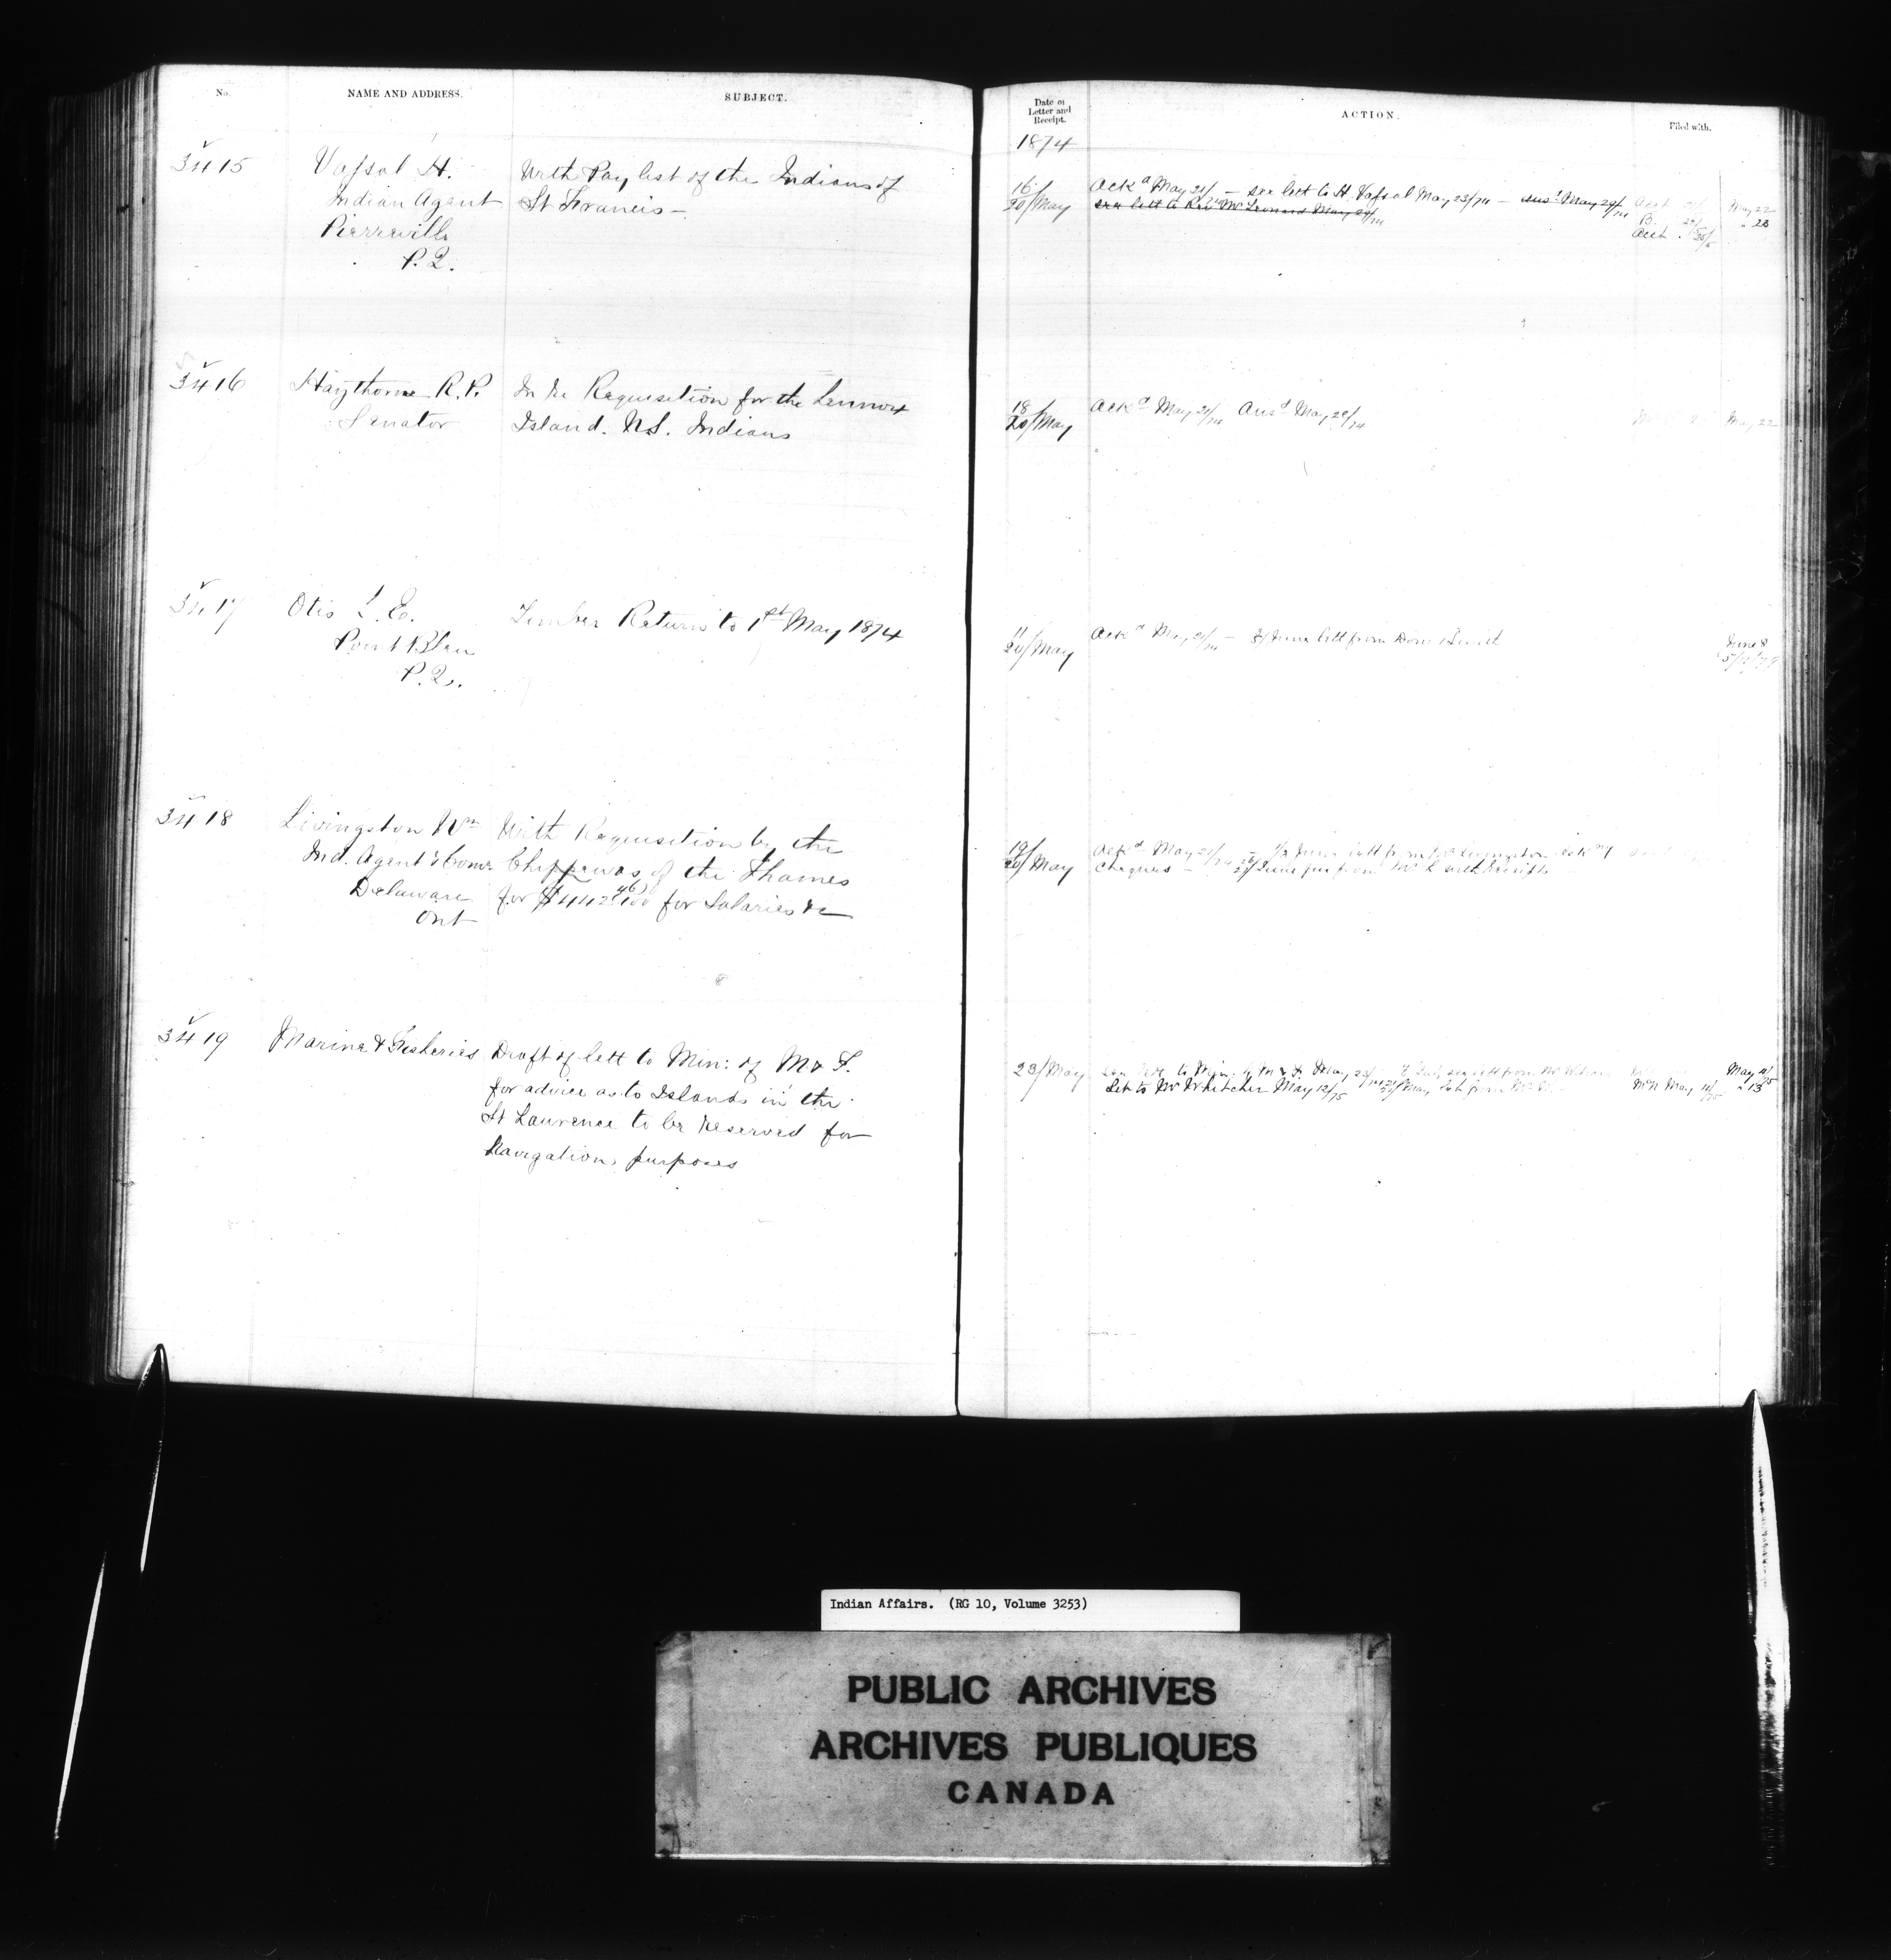 No.
NAME AND ADDRESS.
SUBJECT.
3415
Vassal H.
Indian Agent
Pierreville
P.Q.
With Pay list of the Indians of
St Francis –
3416
Haythorne R.P.
Senator
In re Requisition for the Lennox
Island. N.S. Indians
3417
Otis L. E.
Point Bleu
P.Q.
Timber Return to 1st May 1874
3418
Livingston Wm
Ind. Agent & Comr
Delaware
Ont
With Requisition by the
Chippewas of the Thames
for $442 46/100 for Salaries &c
3419
Marine & Fisheries
Draft of lett to Min: of M & F.
for advice as to Islands in the
St Laurence to be reserved for
Navigation purposes
Date of
Letter and
Receipt.
ACTION.
Filed with.
1874
16/
20/May
Ackd May 21/ – see lett to H. Vassal May 23/74 – ansd May 29/74
see lett to Revd Mr Leonard May 29/74
Acct
B.
Acct
May 22
" 23
18/
20/May
Ackd May 21/74 Ansd May 29/74
May 22
11/
20/May
Ackd May 21/74 – 8/June lett from
June 8
19/
20/May
Ackd May 21/74 June lett from Livingston ack
Cheques – June from Mr L with receipts
23/May
to Min. of M & F May 23/ lett from
Let to Mr Whitcher May 12/75 May from
Mr N May 11/75
May 11/75
" 13
Indian Affairs. (RG 10, Volume 3253)
PUBLIC ARCHIVES
ARCHIVES PUBLIQUES
CANADA